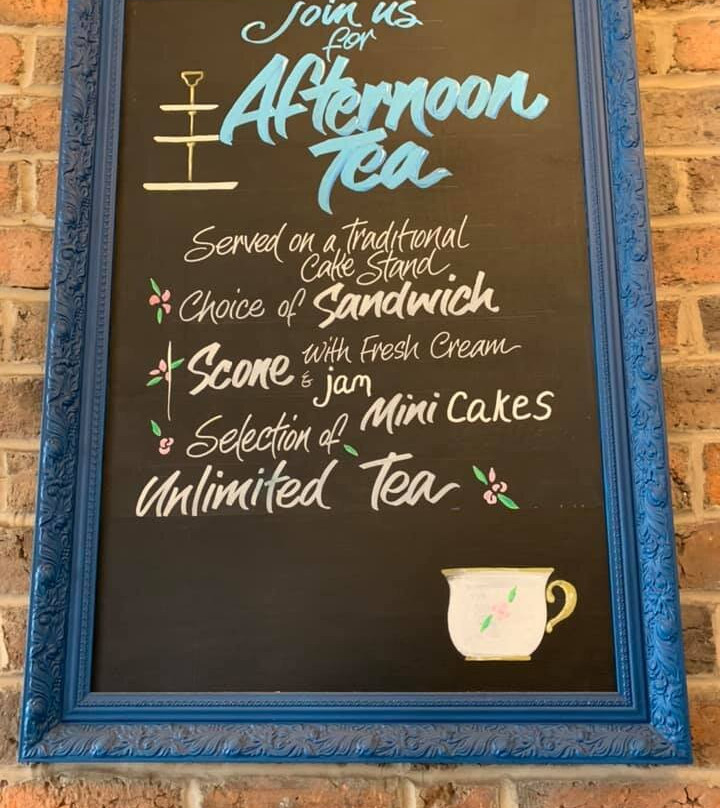 Join us
for
Afternoon
Tea
Served on a Traditional
Cake Stand
Choice of Sandwich
Scone with Fresh Cream
& jam
Selection of Mini Cakes
Unlimited Tea